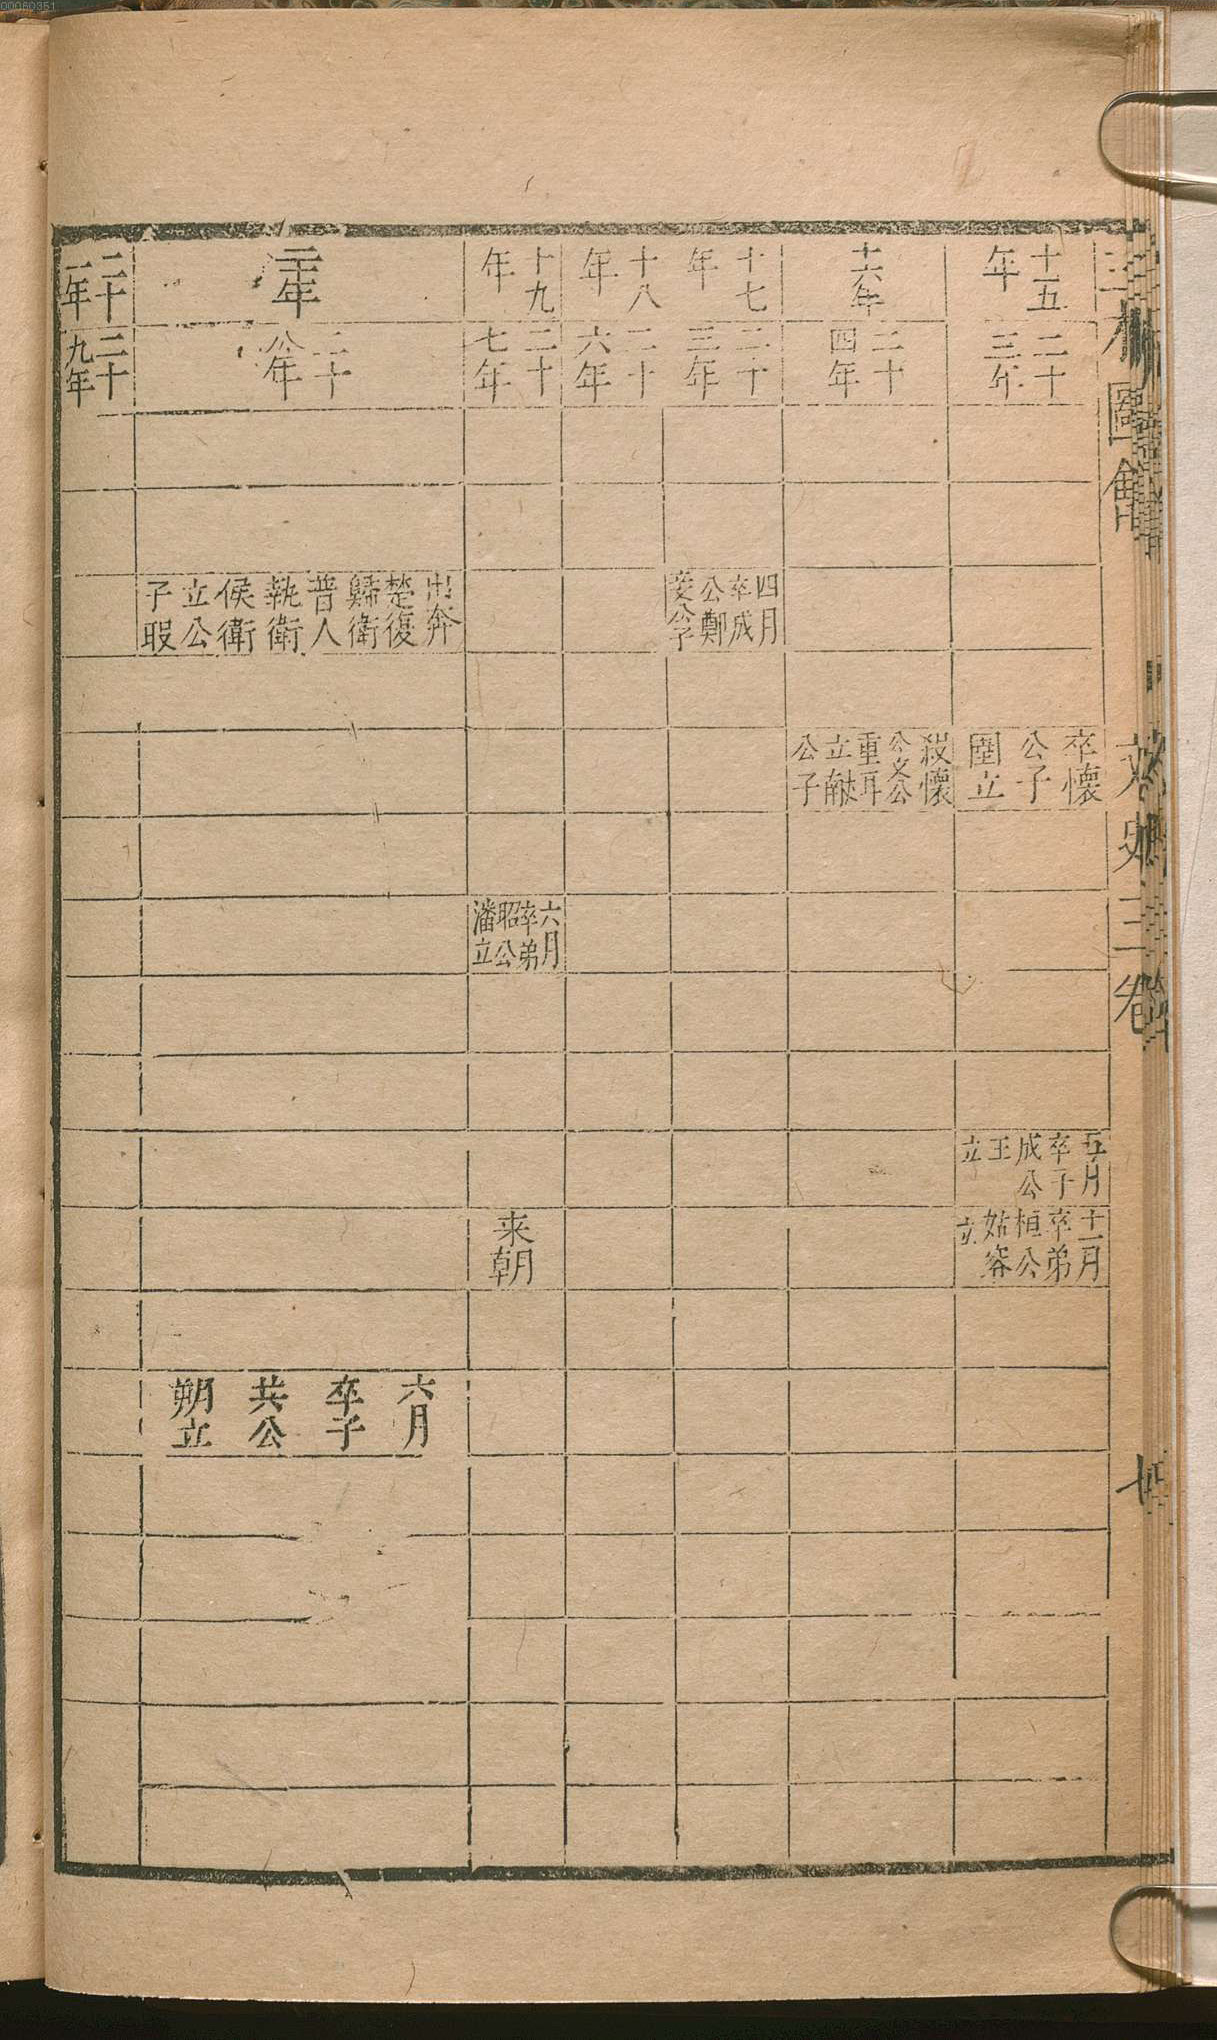 00060351
三才圖會
文史三卷
十五年
二十三年
卒懷公子圉立
五月卒子成公王立
十一月卒弟桓公姑容立
十六年
二十四年
殺懷公文公重耳立獻公子
十七年
二十三年
四月卒成公鄭
十八年
二十六年
十九年
二十七年
六月卒弟昭公潘立
来朝
二十年
二十八年
出奔楚復歸衛晋人執衛侯衛立公子瑕
六月卒子共公朔立
二十一年
二十九年